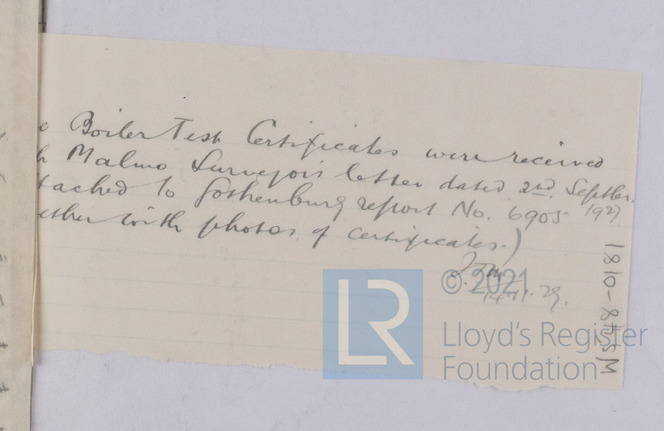 e Boiler Test Certificates were received
h Malmo Surveyors letter dated 2nd Septber.
tached to Gothenburg report No. 6905 1927
ether with photos of certificates.)
14.11.29.
W548-0181
LR
© 2021
Lloyd's Register
Foundation